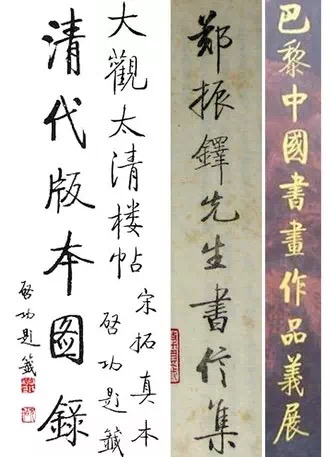 巴黎中國書畫作品義展
鄭振鐸先生書信集
大觀太清楼帖
宋拓真本
啓功題籤
清代版本圖錄
啓功題籤